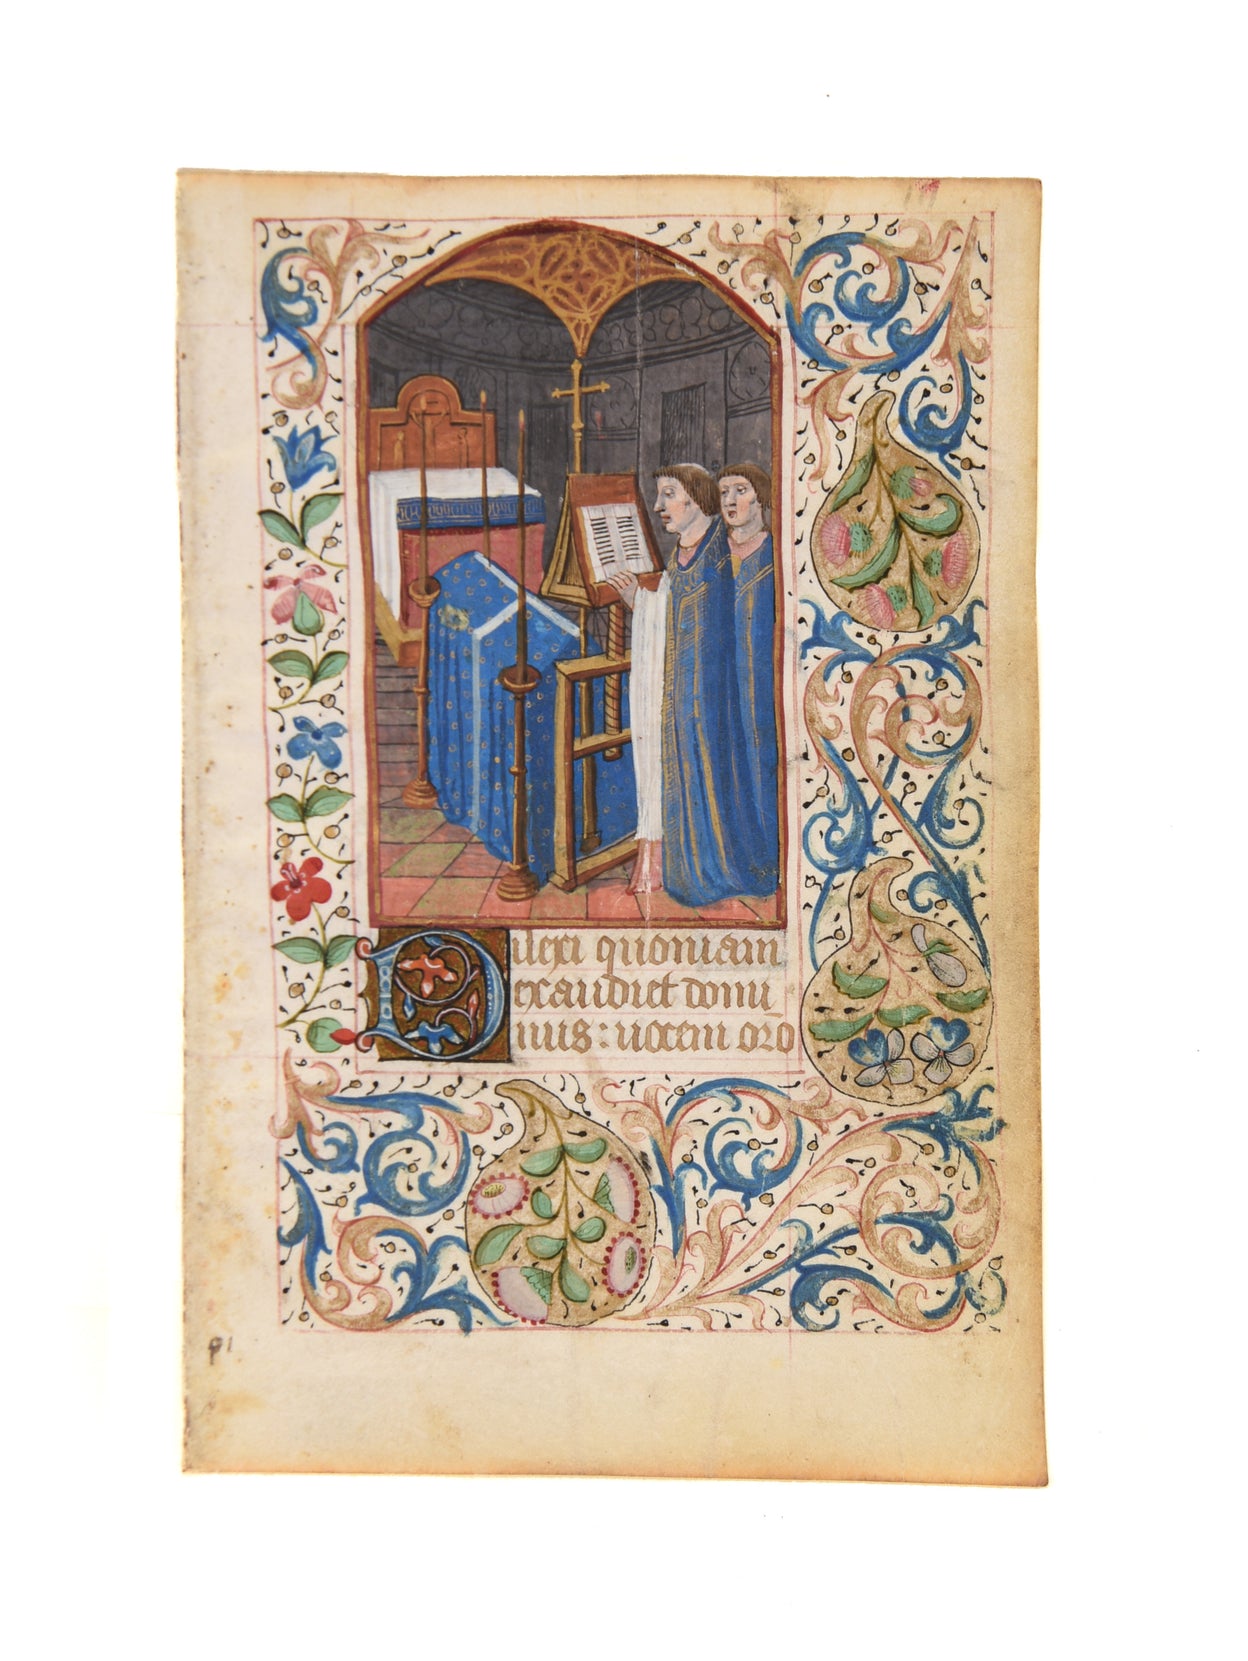 Dilexi quoniam
exaudiet domi
nus: vocem orõ
91